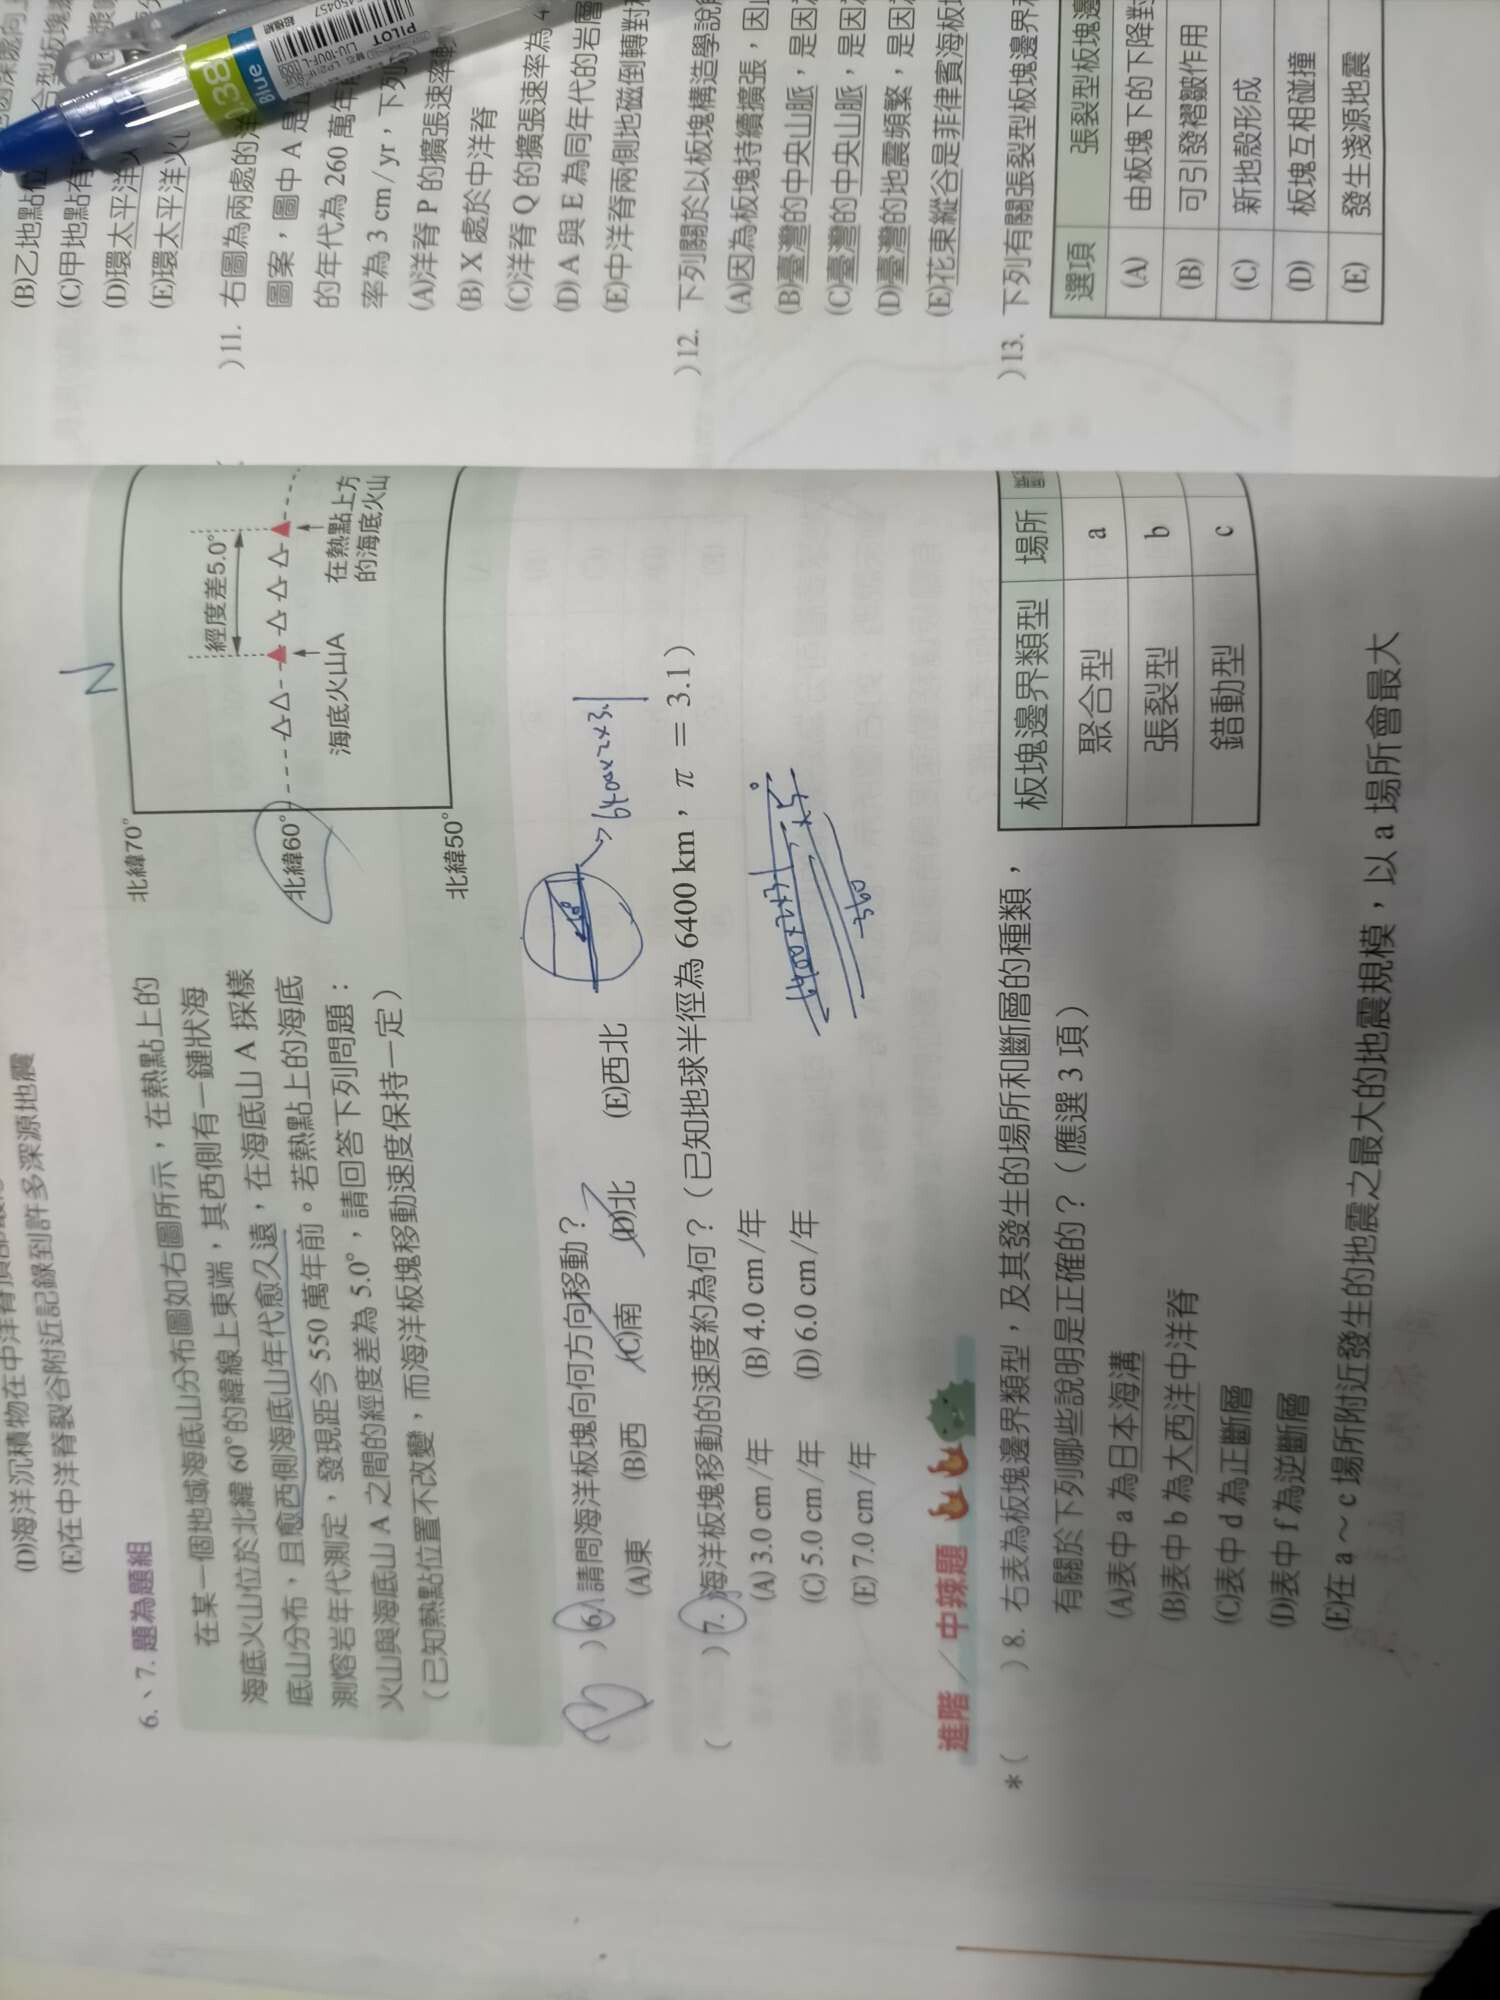 (D)海洋沉積物在中洋脊頂部最
(E)在中洋脊裂谷附近記錄到許多深源地震
6、7. 題為題組
在某一個地域海底山分布圖如右圖所示，在熱點上的
海底火山位於北緯 60°的緯線上東端，其西側有一鏈狀海
底山分布，且愈西側海底山年代愈久遠，在海底山 A 採樣
測熔岩年代測定，發現距今 550 萬年前。若熱點上的海底
火山與海底山 A 之間的經度差為 5.0°，請回答下列問題：
（已知熱點位置不改變，而海洋板塊移動速度保持一定）
N
北緯70°
北緯60°
北緯50°
經度差5.0°
海底火山A
在熱點上方
的海底火山
( B ) 6. 請問海洋板塊向何方向移動？
(A)東 (B)西 (C)南 (D)北 (E)西北
6400×2×3.1
( ) 7. 海洋板塊移動的速度約為何？（已知地球半徑為 6400 km，π = 3.1）
(A) 3.0 cm /年 (B) 4.0 cm /年
(C) 5.0 cm /年 (D) 6.0 cm /年
(E) 7.0 cm /年
360
進階／中辣題
*( ) 8. 右表為板塊邊界類型，及其發生的場所和斷層的種類，
有關於下列哪些說明是正確的？（應選 3 項）
(A)表中 a 為日本海溝
(B)表中 b 為大西洋中洋脊
(C)表中 d 為正斷層
(D)表中 f 為逆斷層
(E)在 a～c 場所附近發生的地震之最大的地震規模，以 a 場所會最大
板塊邊界類型 場所
聚合型 a
張裂型 b
錯動型 c
(B)乙地點位
(C)甲地點有
(D)環太平洋火
(E)環太平洋火
)11. 右圖為兩處的洋
圖案，圖中 A 是
的年代為 260 萬年
率為 3 cm / yr，下列
(A)洋脊 P 的擴張速率
(B) X 處於中洋脊
(C)洋脊 Q 的擴張速率為 4
(D) A 與 E 為同年代的岩層
(E)中洋脊兩側地磁倒轉對
)12. 下列關於以板塊構造學說
(A)因為板塊持續擴張，因
(B)臺灣的中央山脈，是因
(C)臺灣的中央山脈，是因
(D)臺灣的地震頻繁，是因
(E)花東縱谷是菲律賓海板
)13. 下列有關張裂型板塊邊界
選項 張裂型板塊邊
(A) 由板塊下的下降對
(B) 可引發褶皺作用
(C) 新地殼形成
(D) 板塊互相碰撞
(E) 發生淺源地震
PILOT
LJU-10UF-L
Blue